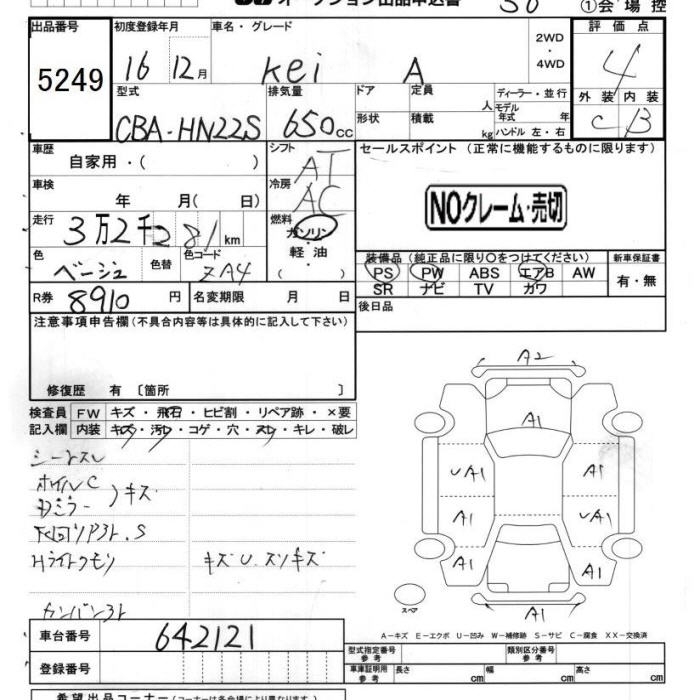 オークション出品申込書 30 ①会場控
出品番号 5249
初度登録年月 16 12月
車名・グレード Kei A
2WD・4WD
評価点 4
外装 C 内装 B
型式 CBA-HN22S
排気量 650cc
ドア 定員 人
形状 積載 kg
ディーラー・並行
モデル年式 年
ハンドル 左・右
車歴 自家用・( )
シフト AT
セールスポイント (正常に機能するものに限ります)
車検 年 月( 日)
冷房 AC
NOクレーム・売切
走行 3万2千281km
燃料 ガソリン・軽油 ( )
色 ベージュ 色替 色コード ZA4
装備品(純正品に限り○をつけてください) 新車保証書
PS PW ABS エアB AW 有・無
SR ナビ TV カワ
R券 8910円 名変期限 月 日
後日品
注意事項申告欄(不具合内容等は具体的に記入して下さい)
修復歴 有 〔箇所 〕
検査員 FW キズ・飛石・ヒビ割・リペア跡・×要
記入欄 内装 キズ・汚レ・コゲ・穴・スレ・キレ・破レ
シートスレ
ホイルC
Dミラー キズ
下回リサビ.S
Hライトクモリ キズU.スリキズ
A2
A1
UA1 A1
A1 UA1
A1 A1
A1
スペア
A-キズ E-エクボ U-凹み W-補修跡 S-サビ C-腐食 XX-交換済
車台番号 642121
登録番号
型式指定番号 参考 類別区分番号 参考
車庫証明用 参考 長さ cm 幅 cm 高さ cm
希望出品コーナー(コーナーは各会場により異なります。)